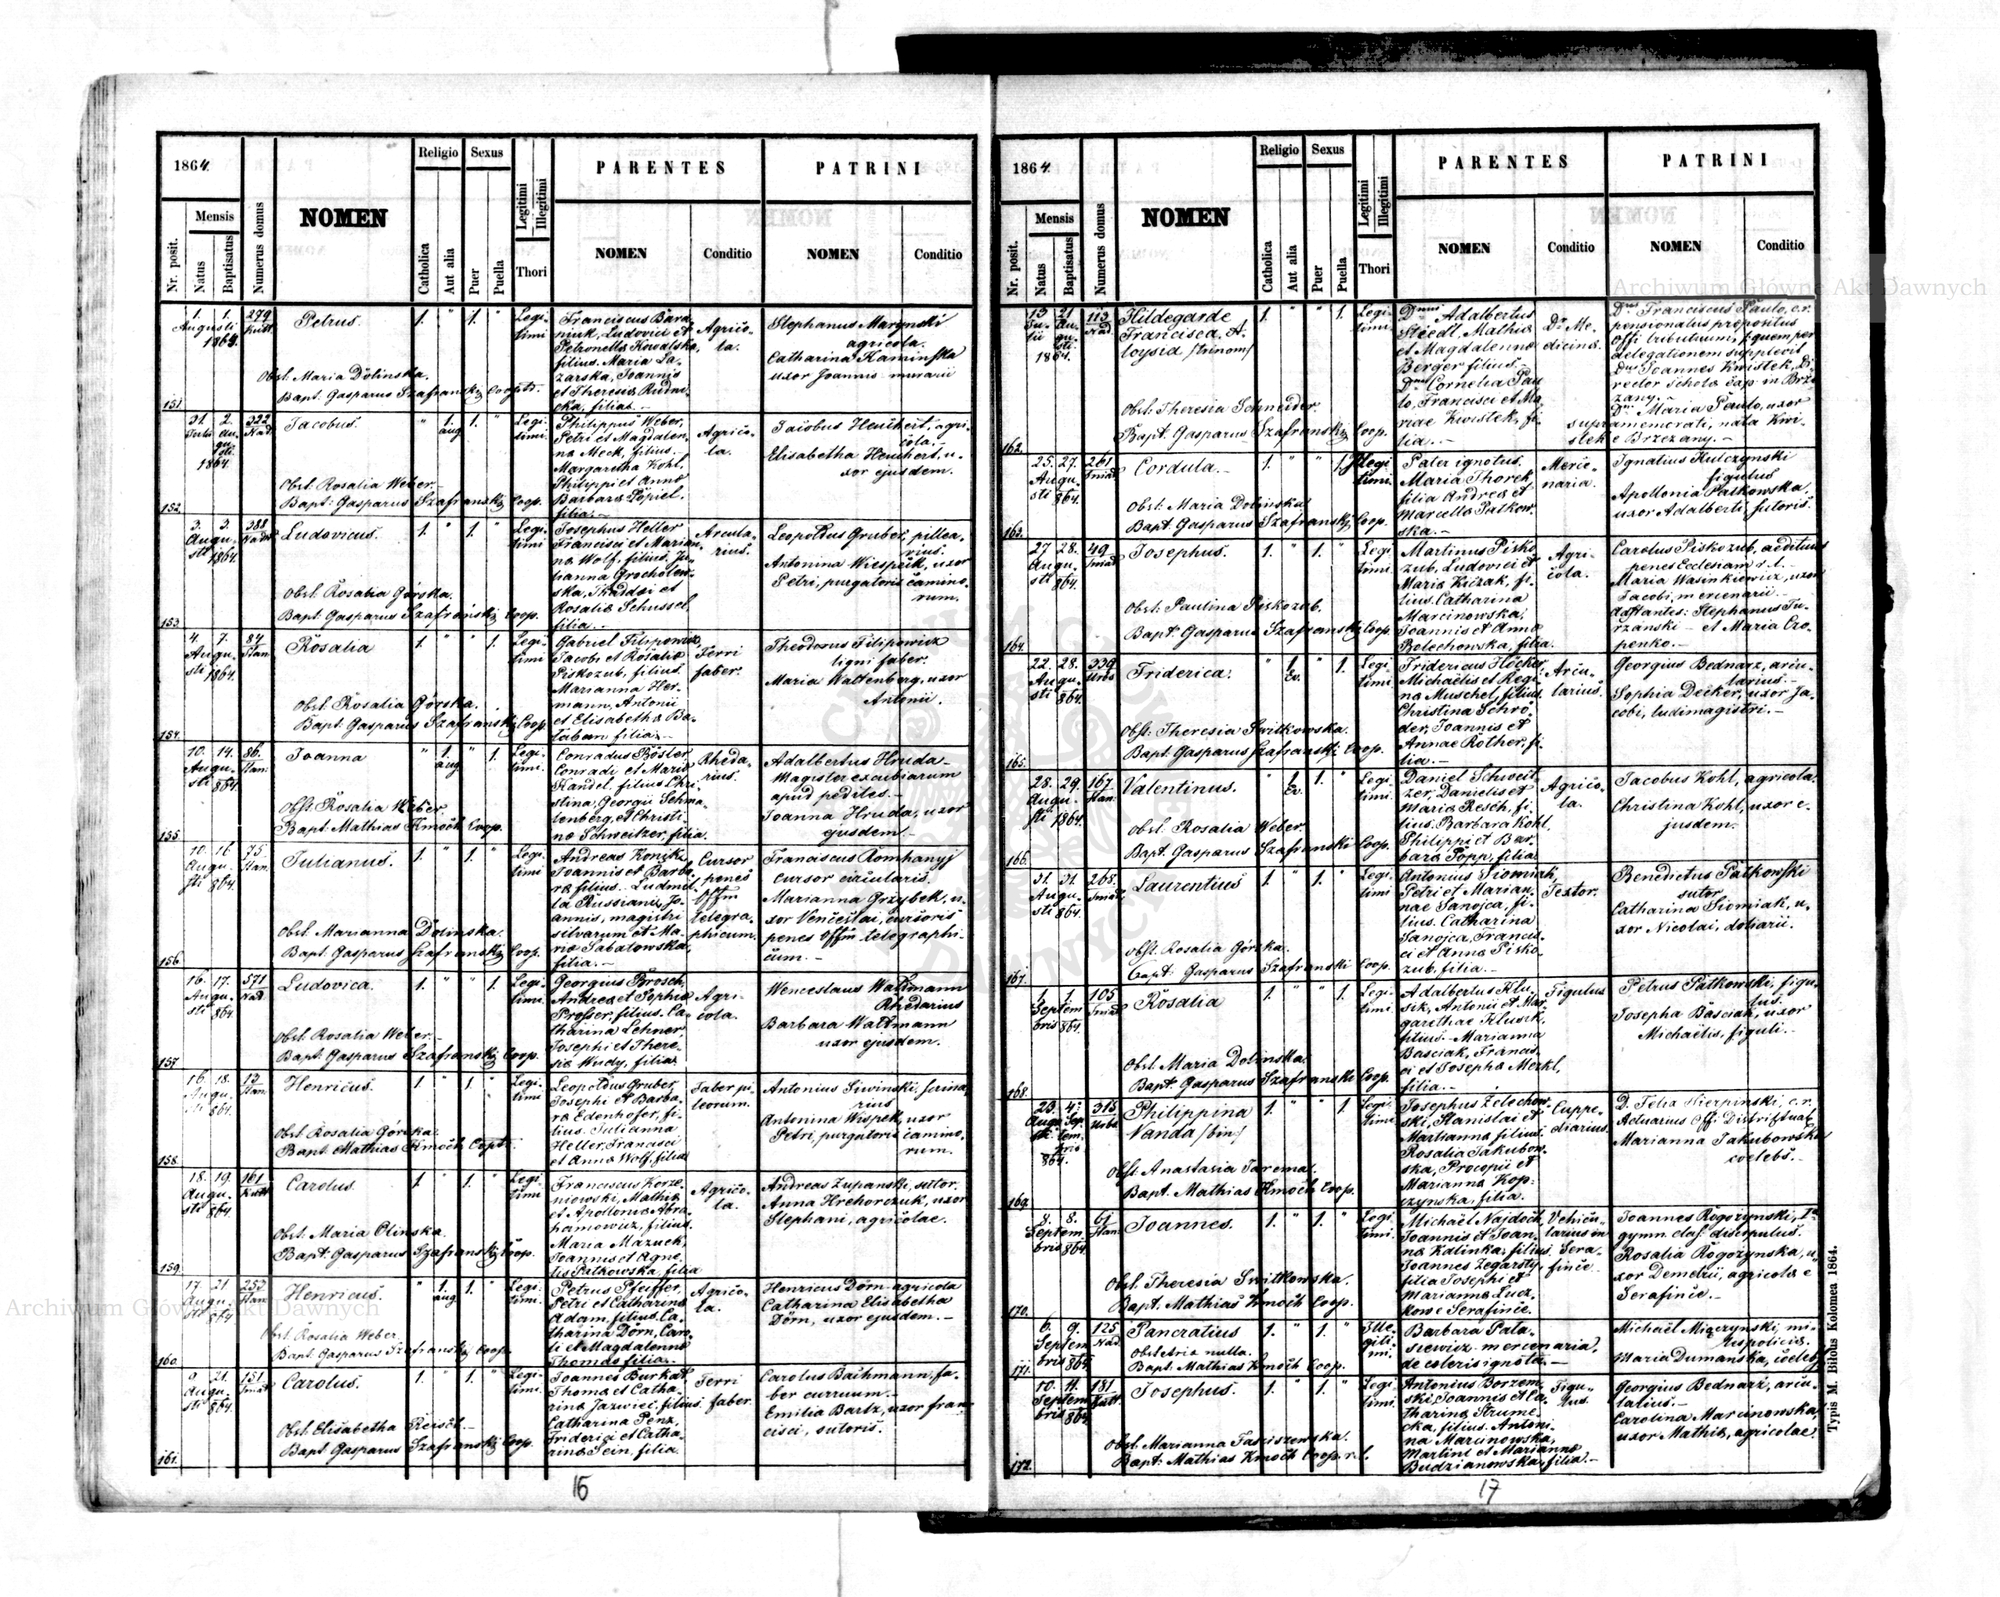 1864.
Nr. posit.
Mensis
Natus
Baptisatus
Numerus domus
NOMEN
Religio
Catholica
Aut alia
Sexus
Puer
Puella
Legitimi
Illegitimi
Thori
PARENTES
NOMEN
Conditio
PATRINI
NOMEN
Conditio
151.
1. 1. 279
Augusti
1864.
Petrus.
1. " 1. "
Legi-
timi
Obst. Maria Dolinska.
Bapt. Gasparus Szafranski Cooptr.
Franciscus Bara-
niuk, Ludovici et
Petronella Kowalska,
filius. Maria La-
zarska, Joannis
et Theresia Rudni-
cka, filia.
Agrico-
la.
Stephanus Marynski
agricola.
Catharina Kaminska
uxor Joannis murarii
152.
31. 2. 322
Julii Au-
gu-
sti
1864.
Jacobus.
" 1. 1. "
aug
Legi-
timi.
Obst. Rosalia Weber.
Bapt. Gasparus Szafranski Coop.
Philippus Weber,
Petri et Magdale-
na Meck, filius.
Margaretha Kohl,
Philippi et Anna
Barbara Popiel,
filia.
Agrico-
la.
Jacobus Heuchert, agri-
cola.
Elisabetha Heuchert, u-
xor ejusdem.
153.
3. 3. 388
Augu-
sti 1864.
Ludovicus.
1. " 1. "
Legi-
timi
Obst. Rosalia Górska.
Bapt. Gasparus Szafranski Coop.
Josephus Heller
Francisci et Marian-
na Wolf, filius, Ju-
lianna Grocholew-
ska, Thaddei et
Rosalia Schussel,
filia.
Arcula-
rius.
Leopoldus Gruber, pillea-
rius.
Antonina Wiespeik, uxor
Petri, purgatoris camino-
rum.
154.
4. 7. 84
Augu- Stan.
sti 1864.
Rosalia
1. " " 1.
Legi-
timi
Obst. Rosalia Górska.
Bapt. Gasparus Szafranski Coop.
Gabriel Filipowicz,
Jacobi et Rosalia
Piskozub, filius.
Marianna Her-
mann, Antonii
et Elisabetha Ba-
laban filia.
Ferri
faber.
Theodorus Filipowicz
ligni faber.
Maria Waltenberg, uxor
Antonii.
155.
10. 14. 86.
Augu- Stan.
sti 864.
Joanna
" 1. " 1.
aug
Legi-
timi.
Obst. Rosalia Weber
Bapt. Mathias Kmoch Coop.
Conradus Bösler,
Conradi et Maria
Kandel, filius. Chri-
stina, Georgii Schma-
lenberg, et Christi-
na Schweitzer, filia.
Rheda-
rius.
Adalbertus Hruda
Magister excubiarum
apud pedites.
Joanna Hruda, uxor
ejusdem.
156.
10. 16. 75
Augu- Stan.
sti 864.
Julianus.
1. " 1. "
Legi-
timi
Obst. Marianna Dolinska.
Bapt. Gasparus Szafranski Coop.
Andreas Konicki
Joannis et Barba-
ra filius. Ludmil-
la Russianis, Jo-
annis, magistri
silvarum et Ma-
ria Sabatowska,
filia.
Cursor
penes
Offm
telegra-
phicum.
Franciscus Romhanyj
cursor circularis.
Marianna Grzybek, u-
xor Venceslai, cursoris
penes Offm telegraphi-
cum.
157.
16. 17. 571
Augu-
sti 864
Ludovica.
1. " " 1.
Legi-
timi.
Obst. Rosalia Weber.
Bapt. Gasparus Szafranski Coop.
Georgius Brosch,
Andrea et Sophia
Prosser, filius. Ca-
tharina Lehner
Josephi et There-
sia Wudy, filia
Agri-
cola.
Wenceslaus Waltmann
Rhedarius
Barbara Waltmann
uxor ejusdem.
158.
16. 18. 13
Augu- Stan.
sti 864.
Henricus.
1. " 1. "
Legi-
timi
Obst. Rosalia Górska.
Bapt. Mathias Kmoch Cooptr.
Leopoldus Gruber,
Josephi et Barba-
ra Edenhofer, fi-
lius. Julianna
Heller, Francisci
et Anna Wolf, filia
Faber pi-
leorum.
Antonius Siwinski, scrina-
rius
Antonina Wispek, uxor
Petri, purgatoris camino-
rum.
159.
18. 19. 161
Augu-
sti 864.
Carolus.
1. " 1. "
Legi-
timi
Obst. Maria Olinska.
Bapt. Gasparus Szafranski Coop.
Franciscus Korze-
niewski, Mathia
et Apollonia Abra-
hamowicz, filius.
Maria Mazuck,
Joannis et Agne-
tis Patkowska, filia
Agrico-
la.
Andreas Zupanski, sutor.
Anna Hrehorczuk, uxor
Stephani, agricolae.
160.
17. 21. 253
Augu- Stan.
sti 864
Henricus.
" 1. 1. "
aug
Legi-
timi.
Obst. Rosalia Weber.
Bapt. Gasparus Szafranski Coop.
Petrus Pfeiffer,
Petri et Catharina
Adam, filius. Ca-
tharina Dörn, Caro-
li et Magdalenna
Thomas filia.
Agrico-
la.
Henricus Dörn agricola
Catharina Elisabetha
Dörn, uxor ejusdem.
161.
9. 21. 151
Augu- Smad.
sti 864
Carolus.
1. " 1. "
Legi-
timi.
Obst. Elisabetha Reisch.
Bapt. Gasparus Szafranski Coop.
Joannes Burkat
Thoma et Catha-
rina Jazwiec, filius.
Catharina Penz,
Friderici et Catha-
rina Sein, filia.
Ferri
faber.
Carolus Bachmann, fa-
ber curruum.
Emilia Bartz, uxor Fran-
cisci, sutoris.
16
1864.
Nr. posit.
Mensis
Natus
Baptisatus
Numerus domus
NOMEN
Religio
Catholica
Aut alia
Sexus
Puer
Puella
Legitimi
Illegitimi
Thori
PARENTES
NOMEN
Conditio
PATRINI
NOMEN
Conditio
162.
13. 21. 113
Ju- Au-
lii gu-
sti
1864.
Hildegarde
Francisca, A-
loysia /trinom/
1. " " 1.
Legi-
timi.
Obst. Theresia Schneider.
Bapt. Gasparus Szafranski Coop.
Dnus Adalbertus
Stiedl, Mathia
et Magdalenna
Berger filius.
Dna Cornelia Pau-
lo, Francisci et Ma-
riae Kwistek, fi-
lia.
Dr. Me-
dicina.
Dnus Franciscus Paulo, c.r.
pensionatus prepositus
Offi tributuum, quem per
delegationem supplevit
Dnus Joannes Kwistek, Di-
rector Schola cap. in Brze-
zany.
Dna Maria Paulo, uxor
supramemorati, nata Kwi-
stek e Brzezany.
163.
25. 27. 261
Augu- Smad.
sti 864.
Cordula.
1. " " 1.
Illegi-
timi.
Obst. Maria Dolinska
Bapt. Gasparus Szafranski Coop.
Pater ignotus.
Maria Thorek,
filia Andrea et
Marcella Patkow-
ska.
Merce-
naria.
Ignatius Kulczynski
figulus
Apollonia Patkowska,
uxor Adalberti, sutoris.
164.
27 28. 49
Augu- Smad.
sti 864.
Josephus.
1. " 1. "
Legi-
timi.
Obst. Paulina Piskozub.
Bapt. Gasparus Szafranski Coop.
Martinus Pisko-
zub, Ludovici et
Maria Kiczak, fi-
lius. Catharina
Marcinowska,
Joannis et Anna
Bolechowska, filia.
Agri-
cola.
Carolus Piskozub, aedituus
penes Ecclesiam r. l.
Maria Wasinkiewicz, uxor
Jacobi, mercenarii.
Asstantes: Stephanus Tu-
rzanski et Maria Czo-
penko.
165.
22. 28. 339
Augu- Urbs
sti 864.
Friderica.
" 1. " 1.
Ev.
Legi-
timi.
Obst. Theresia Switkowska.
Bapt. Gasparus Szafranski Coop.
Fridericus Höcker,
Michaelis et Regi-
na Muschel, filius
Christina Schrö-
der, Joannis et
Annae Rother, fi-
lia.
Arcu-
larius.
Georgius Bednarz, arcu-
larius.
Sophia Decker, uxor Ja-
cobi, ludimagistri.
166.
28. 29. 167
Augu- Stan.
sti 1864.
Valentinus.
" 1. 1. "
Ev.
Legi-
timi.
Obst. Rosalia Weber.
Bapt. Gasparus Szafranski Coop.
Daniel Schweit-
zer, Danielis et
Maria Resch, fi-
lius. Barbara Kohl,
Philippi et Bar-
bara Popp, filia
Agrico-
la.
Jacobus Kohl, agricola.
Christina Kohl, uxor e-
jusdem.
167.
31. 31. 268.
Augu- Smad.
sti 864.
Laurentius
1. " 1. "
Legi-
timi
Obst. Rosalia Górska.
Bapt. Gasparus Szafranski Coop.
Antonius Siomiak,
Petri et Marian-
nae Sanojca, fi-
lius. Catharina
Sanojca, Francis-
ci et Anna Pisko-
zub, filia.
Textor.
Benedictus Patkowski
sutor
Catharina Siomiak, u-
xor Nicolai, doliarii.
168.
1. 1. 105
Septem- Smad.
bris 864.
Rosalia
1. " " 1.
Legi-
timi.
Obst. Maria Dolinska.
Bapt. Gasparus Szafranski Coop.
Adalbertus Klu-
sik, Antonii et Mar-
garethae Klusik,
filius. Marianna
Basciak, Francis-
ci et Josepha Merkl,
filia.
Figulus
Petrus Patkowski, figu-
lus.
Josepha Basciak, uxor
Michaelis, figuli.
169.
23. 4. 315
Augu- Sep- Urbs
sti tem-
bris
864.
Philippina
Vanda /bin/
1. " " 1.
Legi-
timi.
Obst. Anastasia Jarema.
Bapt. Mathias Kmoch Coop.
Josephus Zelechow-
ski, Stanislai et
Marianna filius.
Rosalia Jakubow-
ska, Procopii et
Marianna Kop-
czynska, filia.
Cuppe-
diarius.
D. Felix Sierpinski, c.r.
Actuarius Offi Districtual.
Marianna Jakubowska
coelebs.
170.
8. 8. 61
Septem- Stan.
bris 864
Joannes.
1. " 1. "
Legi-
timi.
Obst. Theresia Switkowska.
Bapt. Mathias Kmoch Coop.
Michael Najdoch,
Joannis et Joan-
na Kalinka, filius.
Joannes Zegarsty,
filia Josephi et
Marianna Lucz-
kow e Serafince.
Vehicu-
larius in
Sera-
fince.
Joannes Rogozynski, Iae
gymn. class. discipulus.
Rosalia Rogozynska, u-
xor Demetrii, agricola e
Serafince.
171.
6. 9. 125
Septem-
bris 864
Pancratius
1. " 1. "
Ille-
giti-
mi.
Obstetrix nulla.
Bapt. Mathias Kmoch Coop.
Barbara Pata-
siewicz mercenaria,
de coteris ignota.
Michael Miączynski, mi-
les policia.
Maria Dumanska, coelebs
172.
10. 11. 181
Septem-
bris 864
Josephus.
1. " 1. "
Legi-
timi.
Obst. Marianna Tariszewska.
Bapt. Mathias Kmoch Coop. r. l.
Antonius Borzem-
ski, Joannis et Ca-
tharina Strume-
cka, filius. Antoni-
na Marcinowska,
Martini et Marianna
Budzianowska, filia.
Figu-
lus.
Georgius Bednarz, arcu-
larius.
Carolina Marcinowska,
uxor Mathia, agricolae.
Typis M. Bilous Kolomea 1864.
17
Archiwum Główne Akt Dawnych
Archiwum Główne Akt Dawnych